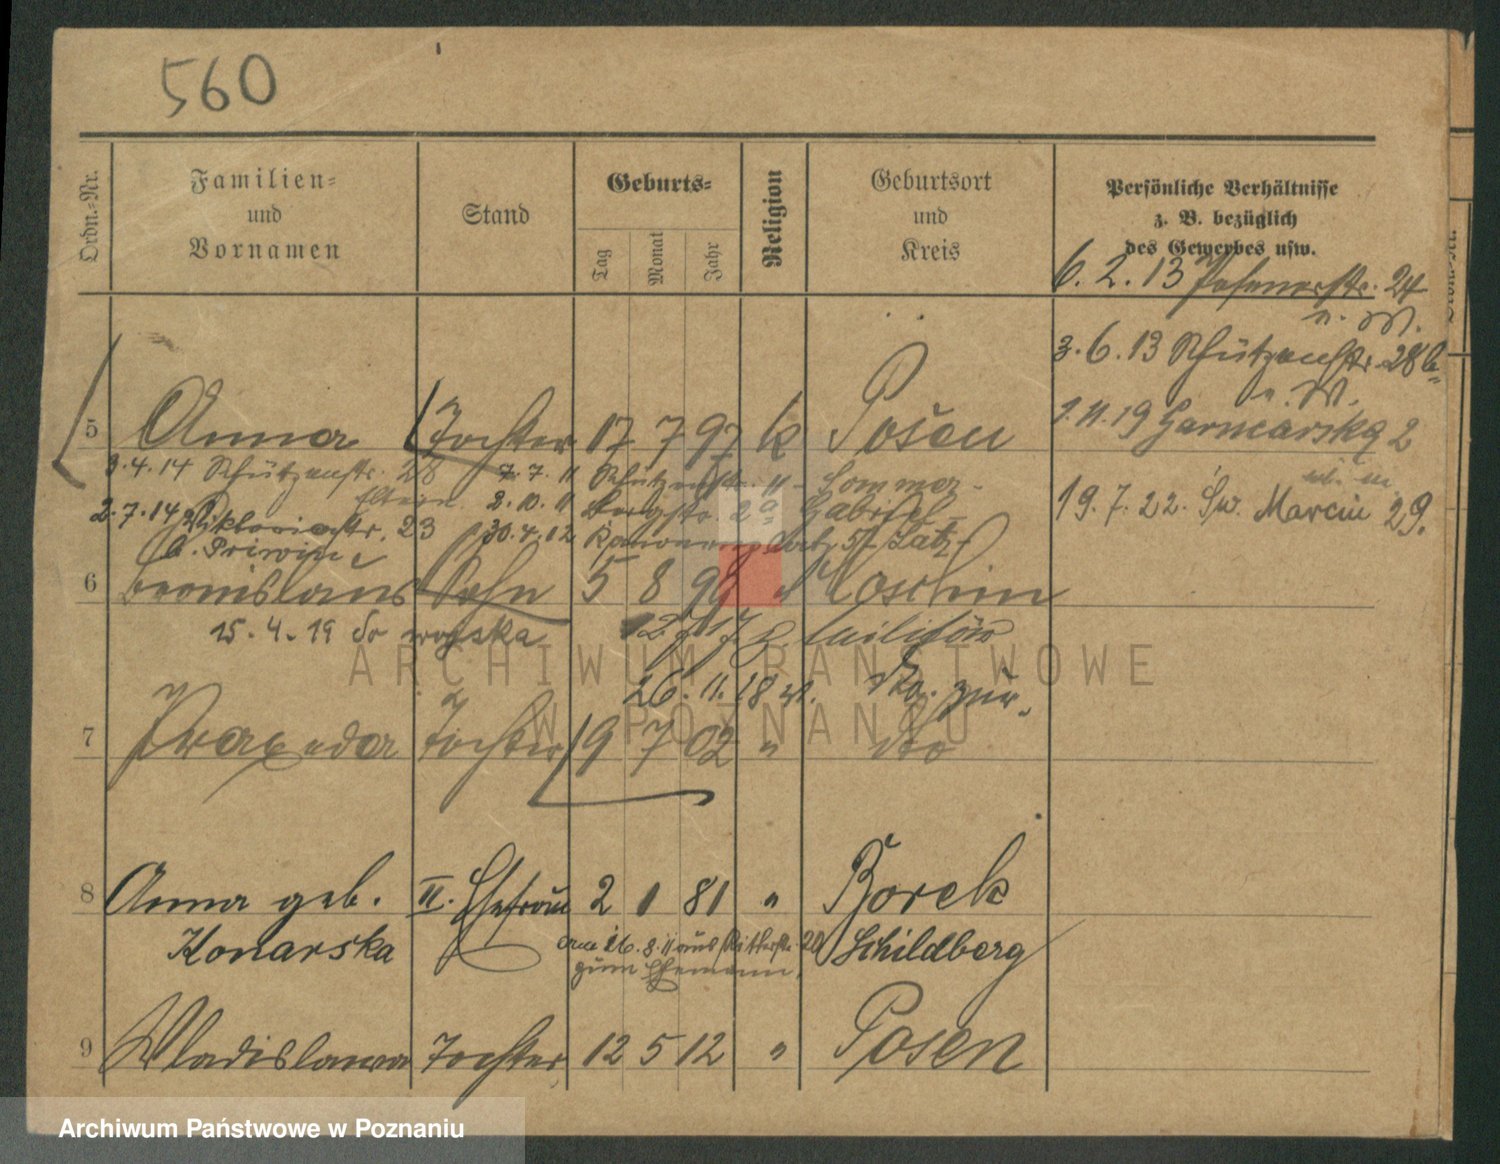 560
Ordn.-Nr.
Familien-
und
Vornamen
Stand
Geburts-
Tag
Monat
Jahr
Religion
Geburtsort
und
Kreis
Persönliche Verhältnisse
z. B. bezüglich
des Gewerbes usw.
6. 2. 13 Posenerstr. 24
3. 6. 13 Schützenstr. 28b
5 Anna Tochter 17 7 97 k Posen
1. 11. 19 Garncarska 2
3. 4. 14 Schützenstr. 28 7. 7. 11 Schützenstr. 11 - Sommer -
Eltern 2. 10. 11 Bergstr. 2a Gabriel -
2. 7. 14 Viktoriastr. 23 30. 4. 12
19. 7. 22. Św. Marcin 29.
6 Bronislaus Sohn 5 8 98 " Moschin
15. 4. 19 do wojska
26. 11. 18
7 Praxeda Tochter 19 7 02 " dto
8 Anna geb. II. Ehefrau 2 1 81 " Borek
Konarska am 26. 8. 11 aus Ritterstr. 20 Schildberg
zum Ehemann.
9 Wladislawa Tochter 12 5 12 " Posen
ARCHIWUM PAŃSTWOWE
W POZNANIU
Archiwum Państwowe w Poznaniu